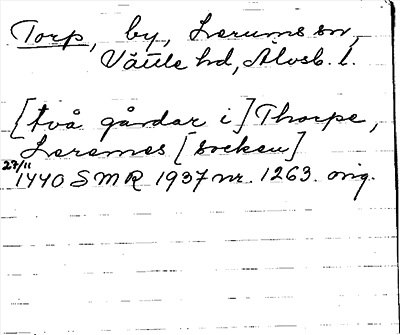 Torp, by, Lerums sn,
Vättle hd, Älvsb. l.
[två gårdar i] Thorpe,
Leremes [socken]
27/11
1440 SMR 1937 nr. 1263. orig.